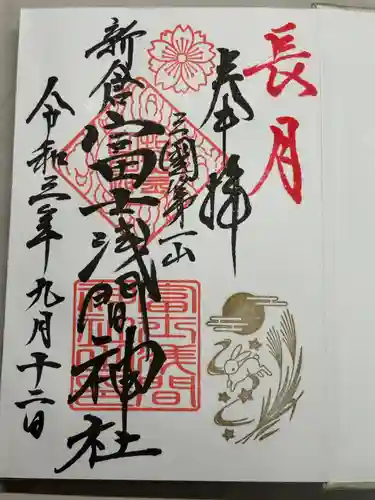 長月
奉拝
三國第一山
新倉
富士浅間神社
令和三年九月十二日